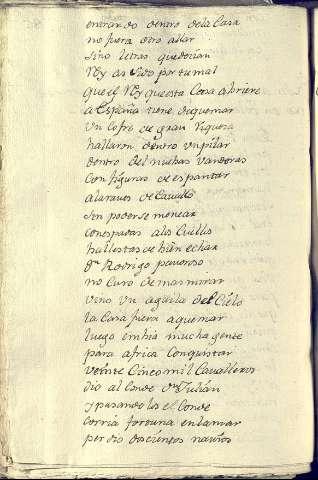 entrando dentro de la Casa
no fuera otro allar
sino letras que decian
Rey as sido por tu mal
que el Rey que esta Casa abriere
a España tiene de quemar
Un Cofre de gran riqueza
hallaron dentro un pilar
dentro del muchas vanderas
Con figuras de espantar
alaraves de Cavallo
sin poderse menear
Con espadas a los Cuellos
ballestas de bien echar
Dn Rodrigo pavoroso
no Curo de mas mirar
vino un aguila del Cielo
la Casa fuera a quemar
luego embia mucha gente
para africa Conquistar
veinte Cinco mil Cavalleros
dio al Conde Dn Julian
y pasandolos el Conde
Corria fortuna en la mar
perdio doscientos navios